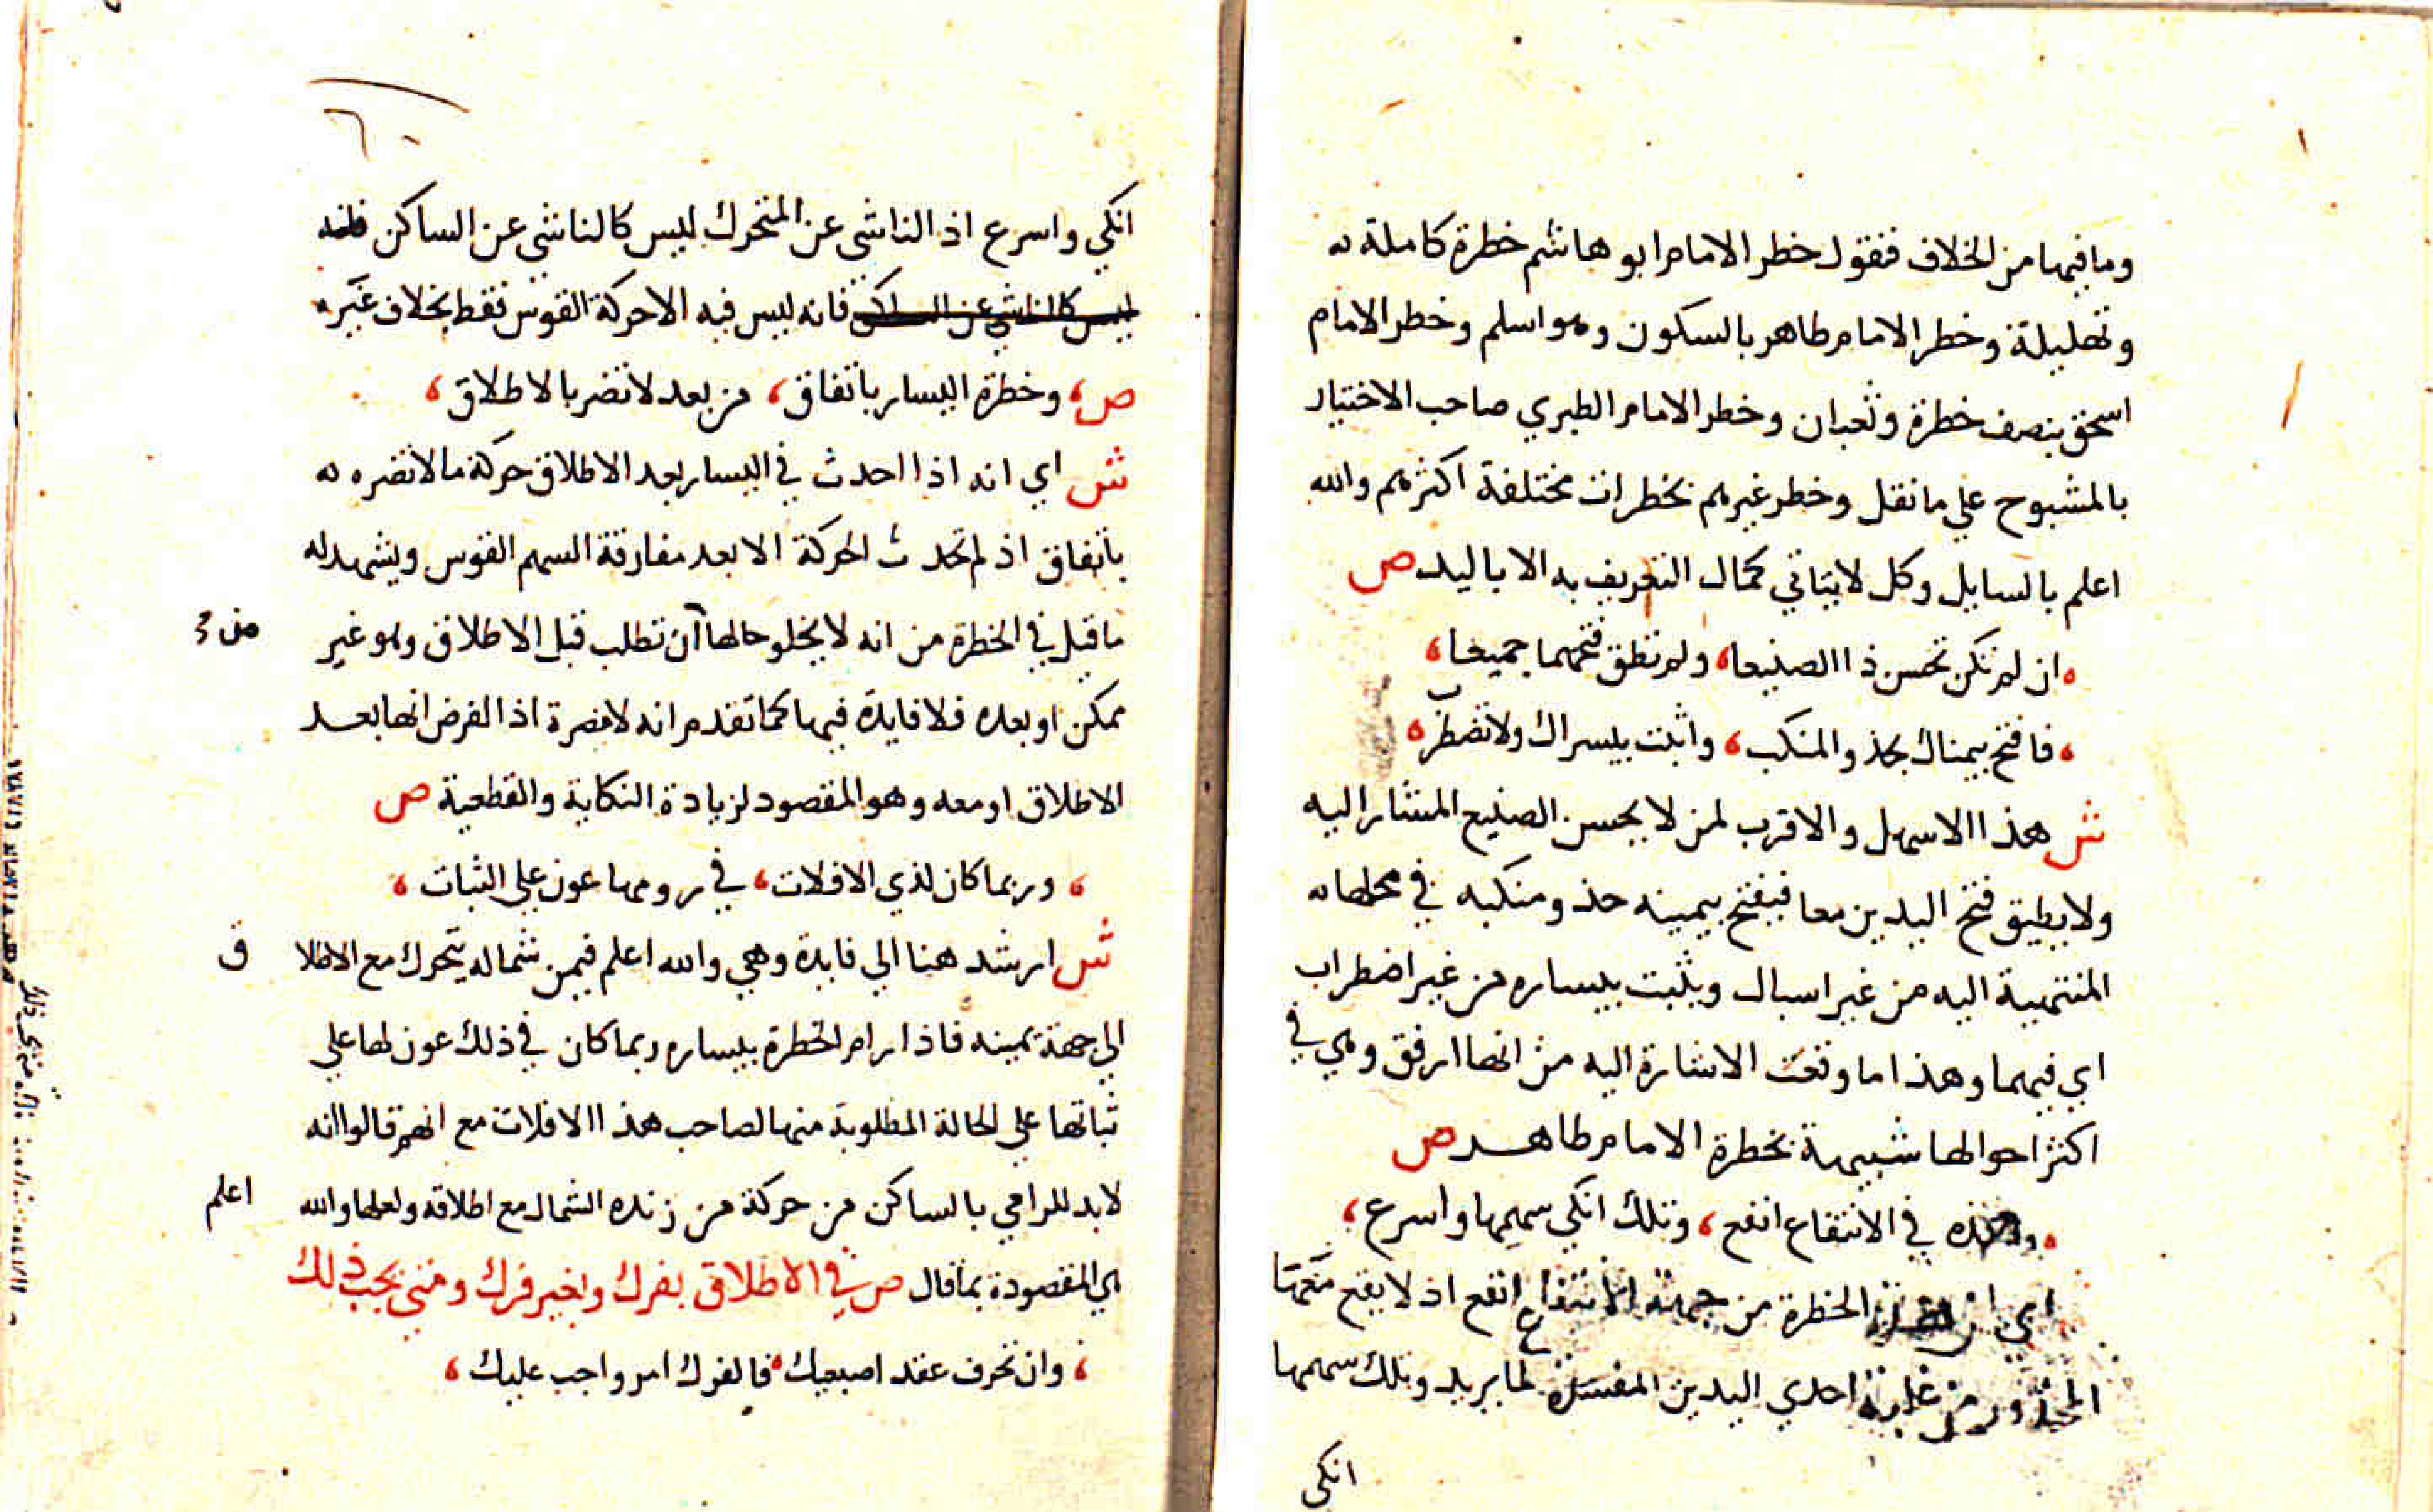 وما فيها من الخلاف فنقول خطر الامام ابو هاشم خطرة كاملة
وتحليلة وخطر الامام طاهر بالسكون وهو اسلم وخطر الامام
اسحق بنصف خطرة وثعبان وخطر الامام الطبري صاحب الاختيار
بالمشبوح علي ما نقل وخطر غيرهم بخطرات مختلفة اكثرهم والله
اعلم بالسايل وكل لا يتاتي كمال التعريف به الا باليد ص
ان لم تكن تحسن ذا الصنيعا، ولم تطق فتحهما جميعا،
، فافتح بيمناك بحذو المنكب، واثبت بيسراك ولا تضطرب
ش هذا الاسهل والاقرب لمن لا يحسن الصنيع المشار اليه
ولا يطيق فتح اليدين معا فيفتح بيمينه حذو منكبه في محلها
المنتهية اليه من غير اسبال ويثبت بيساره من غير اضطراب
اي فيهما وهذا ما وقعت الاشارة اليه من انها ارفق وهي في
اكثر احوالها شبيهة بخطرة الامام طاهر ص
، وهذه في الانتفاع انفع، وتلك انكي سهمها واسرع،
اي ان الخطرة من جهة الانتفاع انفع اذ لا يقع معها
المحذور من غلبة احدي اليدين المفسدة لما يريد وتلك سهمها
انكي
٦٠
انكي واسرع اذ الناشي عن المتحرك ليس كالناشي عن الساكن
ليس كالناشي عن الساكن فانه ليس فيه الا حركة القوس فقط بخلاف غيره
ص، وخطرة اليسار باتفاق، من بعد لا تضر بالاطلاق،
ش اي انه اذا احدث في اليسار بعد الاطلاق حركة ما لا تضره
باتفاق اذ لم تحدث الحركة الا بعد مفارقة السهم القوس ويشهد له
ما قيل في الخطرة من انه لا يخلو حالها آن تطلب قبل الاطلاق وهو غير
ممكن او بعده فلا فايدة فيها كما تقدم انه لا مضرة اذ الفرض انها بعد
الاطلاق او معه وهو المقصود لزيادة النكاية والقطعية ص
، وربما كان لذي الافلات، في رومها عون علي الثبات،
ش ارشد هنا الي فايدة وهي والله اعلم فيمن شماله يتحرك مع الاطلا ق
الي جهة يمينه فاذا رام الخطرة بيساره ربما كان في ذلك عون لها علي
ثباتها علي الحالة المطلوبة منها لصاحب هذا الافلات مع انهم قالوا انه
لابد للرامي بالساكن من حركة من زنده الشمال مع اطلاقه ولعلها والله اعلم
هي المقصودة بما قال ص في الاطلاق بفرك وبغير فرك ومتي يجب ذلك
، وان تحرف عقد اصبعيك، فالفرك امر واجب عليك،